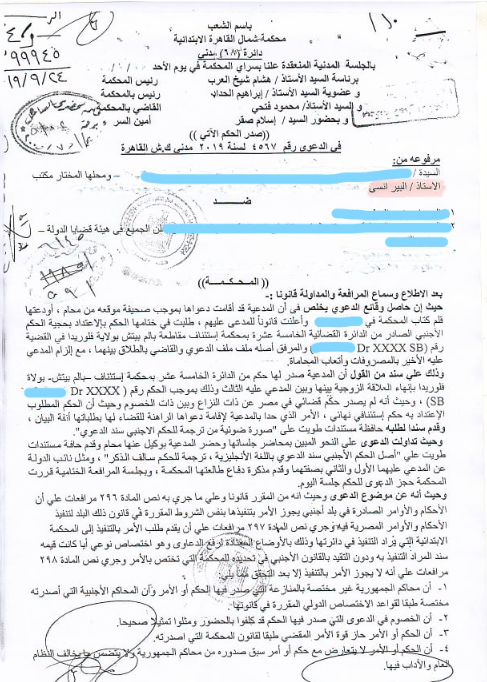 باسم الشعب
محكمة شمال القاهرة الابتدائية
دائرة (٦٨) مدني
بالجلسة المدنية المنعقدة علنا بسراي المحكمة في يوم الأحد
برئاسة السيد الأستاذ / هشام شيخ العرب رئيس المحكمة
و عضوية السيد الأستاذ / إبراهيم الحداد رئيس بالمحكمة
و السيد الأستاذ / محمود فتحي القاضي بالمحكمة
و بحضور السيد / إسلام صقر أمين السر
((صدر الحكم الآتي))
في الدعوى رقم ٤٥٦٧ لسنة ٢٠١٩ مدني ك.ش القاهرة
مرفوعه من:
السيدة / – ومحلها المختار مكتب
الاستاذ / البير انسي
ضــد
١
٢ الجميع في هيئة قضايا الدولة –
((المـحـكـمـة))
بعد الاطلاع وسماع المرافعة والمداولة قانونا :-
حيث إن حاصل وقائع الدعوى يخلص فى أن المدعية قد أقامت دعواها بموجب صحيفة موقعه من محام ، أودعتها
قلم كتاب المحكمة في وأعلنت قانوناً للمدعي عليهم ، طلبت في ختامها الحكم بالإعتداد بحجية الحكم
الأجنبي الصادر من الدائرة القضائية الخامسة عشر بمحكمة إستئناف مقاطعة بالم بيتش بولاية فلوريدا في القضية
رقم (Dr XXXX SB) والمرفق أصله ملف الدعوي والقاضي بالطلاق بينهما ، مع إلزام المدعي
عليه الأخير بالمصروفات وأتعاب المحاماة.
وذلك علي سند من القول أن المدعية صدر لها حكم من الدائرة الخامسة عشر بمحكمة إستئناف –بالم بيتش- بولاة
فلوريدا بإنهاء العلاقة الزوجية بينها وبين المدعي عليه الثالث وذلك بموجب الحكم رقم ( Dr XXXX
SB) وحيث أنه لم يصدر حكم قضائي في مصر عن ذات النزاع وبين ذات الخصوم وحيث أن الحكم المطلوب
الإعتداد به حكم إستئنافي نهائي ، الأمر الذي حدا بالمدعية لإقامة دعواها الراهنة للقضاء لها بطلباتها آنفة البيان ،
وقدم سندا لطلبه حافظة مستندات طويت علي "صورة ضوئية من ترجمة للحكم الاجنبي سند الدعوي".
وحيث تداولت الدعوى على النحو المبين بمحاضر جلساتها وحضر المدعية بوكيل عنها محام وقدم حافة مستندات
طويت علي "أصل الحكم الأجنبي سند الدعوي باللغة الأنجليزية ، ترجمة للحكم سالف الذكر" ، ومثل نائب الدولة
عن المدعي عليهما الأول والثاني بصفتهما وقدم مذكرة دفاع طالعتها المحكمة ، وبجلسة المرافعة الختامية قررت
المحكمة حجز الدعوى للحكم جلسة اليوم.
وحيث أنه عن موضوع الدعوى وحيث انه من المقرر قانونا وعلي ما جري به نص المادة ٢٩٦ مرافعات علي أن
الأحكام والأوامر الصادرة في بلد أجنبي يجوز الأمر بتنفيذها بنفس الشروط المقررة في قانون ذلك البلد لتنفيذ
الأحكام والأوامر المصرية فيه وجري نص المادة ٢٩٧ مرافعات علي أن يقدم طلب الأمر بالتنفيذ إلى المحكمة
الابتدائية التي يُراد التنفيذ في دائرتها وذلك بالأوضاع المعتادة لرفع الدعاوى وهو اختصاص نوعي أيا كانت قيمه
سند المراد التنفيذ به ودون التقيد بالقانون الأجنبي في تحديده للمحكمة التي تختص بالأمر وجري نص المادة ٢٩٨
مرافعات علي أنه لا يجوز الأمر بالتنفيذ إلا بعد التحقق مما يلي:
١- أن محاكم الجمهورية غير مختصة بالمنازعة التي صدر فيها الحكم أو الأمر وأن المحاكم الأجنبية التي أصدرته
مختصة طبقا لقواعد الاختصاص الدولي المقررة في قانونها .
٢- أن الخصوم في الدعوى التي صدر فيها الحكم قد كلفوا بالحضور ومثلوا تمثيلا صحيحا.
٣- أن الحكم أو الأمر حاز قوة الأمر المقضي طبقا لقانون المحكمة التي اصدرته.
٤- أن الحكم أو الأمر لا يتعارض مع حكم أو أمر سبق صدوره من محاكم الجمهورية ولا يتضمن ما يخالف النظام
العام والأداب فيها.